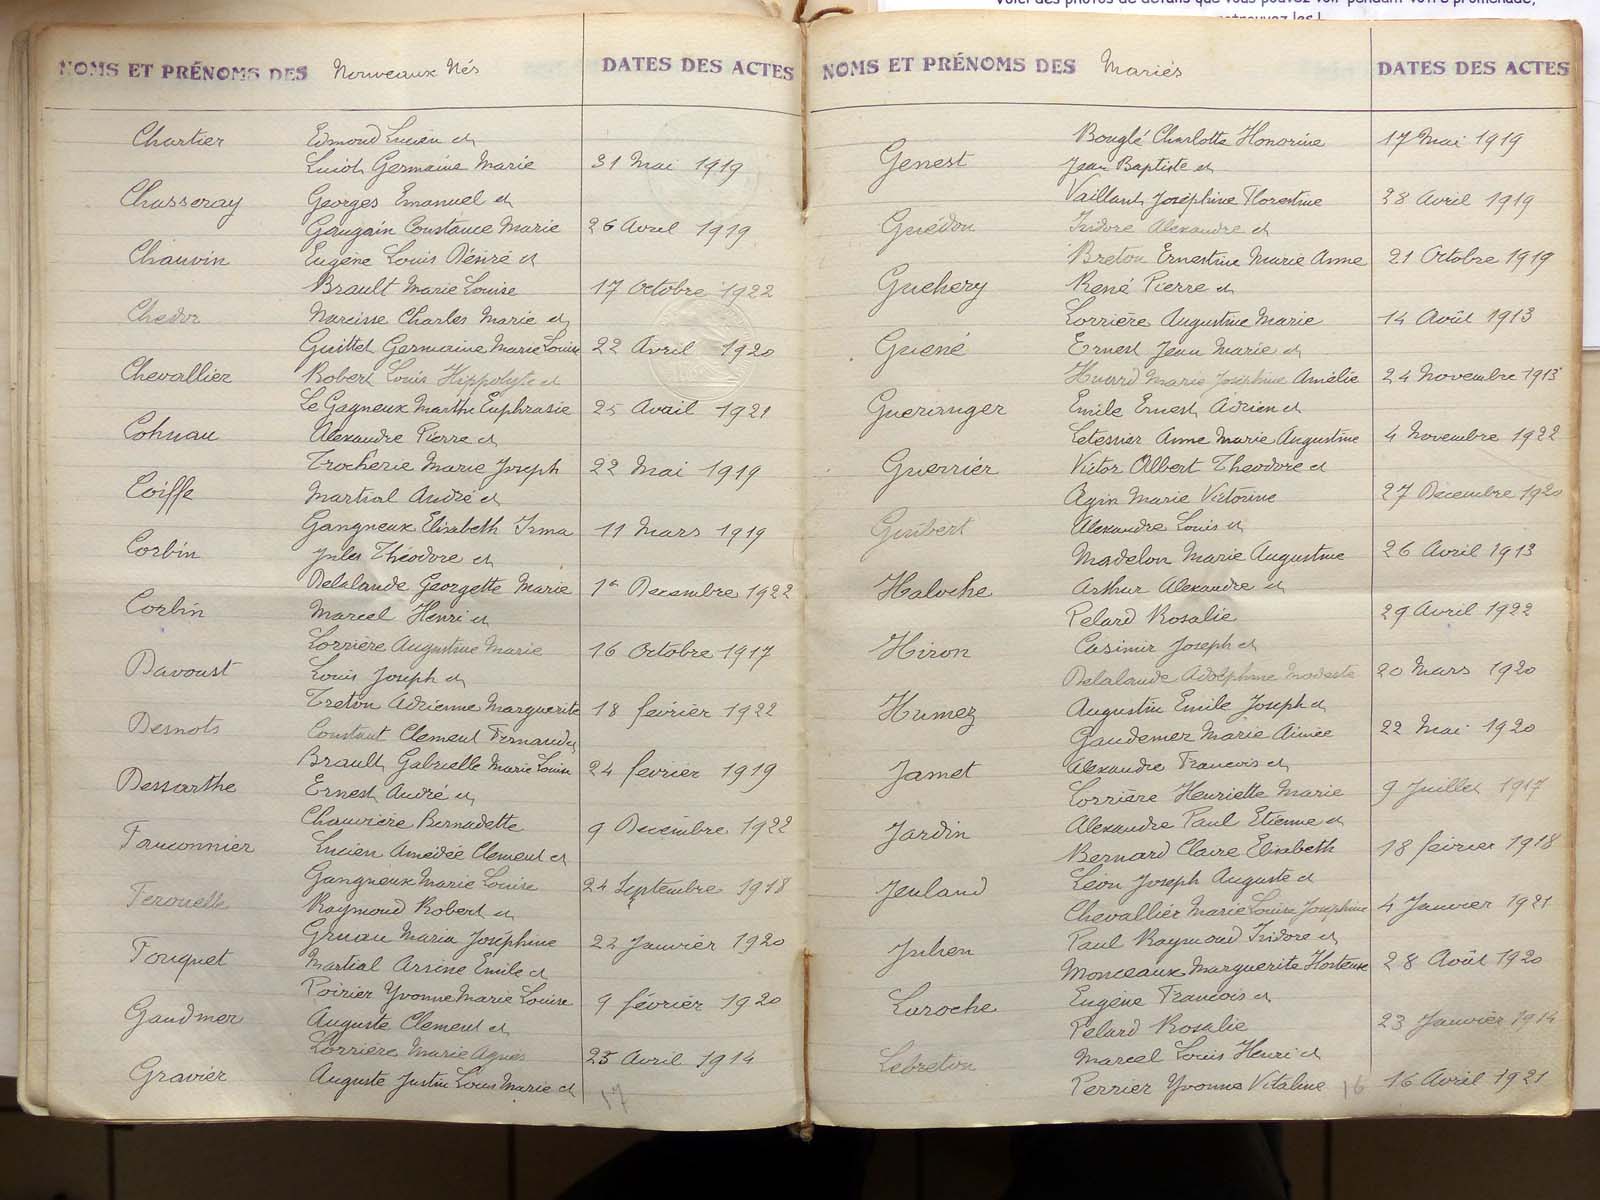 Voici des photos de détails que vous pouvez voir pendant votre promenade,
retrouvez les !
NOMS ET PRÉNOMS DES Nouveaux Nés DATES DES ACTES
Chartier Edmond Lucien et
Luiot Germaine Marie 31 Mai 1919
Chasseray Georges Emanuel et
Gaugain Constance Marie 26 Avril 1919
Chauvin Eugène Louis Désiré et
Brault Marie Louise 17 Octobre 1922
Chedor Narcisse Charles Marie et
Guittet Germaine Marie Louise 22 Avril 1920
Chevallier Robert Louis Hippolyte et
Le Gagneux Marthe Euphrasie 25 Avril 1921
Cohuau Alexandre Pierre et
Trocherie Marie Joseph 22 Mai 1919
Coiffe Martial André et
Gangneux Elisabeth Irma 11 Mars 1919
Corbin Jules Théodore et
Delalande Georgette Marie 1er Decembre 1922
Corbin Marcel Henri et
Lorrière Augustine Marie 16 Octobre 1917
Davoust Louis Joseph et
Treton Adrienne Marguerite 18 février 1922
Desnots Constant Clement Fernand et
Brault Gabrielle Marie Louise 24 fevrier 1919
Dessarthe Ernest André et
Chauvière Bernadette 9 Decembre 1922
Fauconnier Lucien Amédée Clement et
Gangneux Marie Louise 24 Septembre 1918
Ferouelle Raymond Robert et
Gruau Maria Joséphine 22 Janvier 1920
Fouquet Martial Arsène Emile et
Poirier Yvonne Marie Louise 9 février 1920
Gaudmer Auguste Clement et
Lorrière Marie Agnès 25 Avril 1914
Gravier Auguste Justin Louis Marie et
17
NOMS ET PRÉNOMS DES Mariés DATES DES ACTES
Bouglé Charlotte Honorine 17 Mai 1919
Genest Jean Baptiste et
Vaillant Joséphine Florentine 28 Avril 1919
Guédon Isidore Alexandre et
Breton Ernestine Marie Anne 21 Octobre 1919
Guehery René Pierre et
Lorrière Augustine Marie 14 Août 1913
Guené Ernest Jean Marie et
Huard Marie Joséphine Amélie 24 Novembre 1913
Gueranger Emile Ernest Adrien et
Letessier Anne Marie Augustine 4 Novembre 1922
Guerrier Victor Albert Theodore et
Agin Marie Victorine 27 Decembre 1920
Guibert Alexandre Louis et
Madelon Marie Augustine 26 Avril 1913
Haloche Arthur Alexandre et
Pelard Rosalie 29 Avril 1922
Hiron Casimir Joseph et
Delalande Adolphine Modeste 20 Mars 1920
Humez Augustin Emile Joseph et
Gaudemer Marie Aimée 22 Mai 1920
Jamet Alexandre Francois et
Lorrière Henriette Marie 9 Juillet 1917
Jardin Alexandre Paul Etienne et
Bernard Claire Elisabeth 18 février 1918
Jeuland Léon Joseph Auguste et
Chevallier Marie Louise Joséphine 4 Janvier 1921
Julien Paul Raymond Isidore et
Monceaux Marguerite Hortense 28 Août 1920
Laroche Eugène Francois et
Pelard Rosalie 23 Janvier 1914
Lebreton Marcel Louis Henri et
Perrier Yvonne Vitaline 16 16 Avril 1921